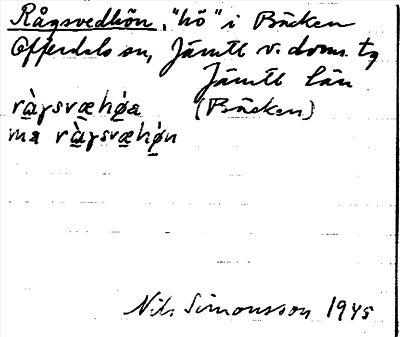 Rågsvedhön, "hö" i Bäcken
Offerdals sn, Jämtl v. doms. tg
Jämtl län
ràgsvæhø̀a (Bäcken)
ma ràgsvæhø̀n
Nils Simonsson 1945